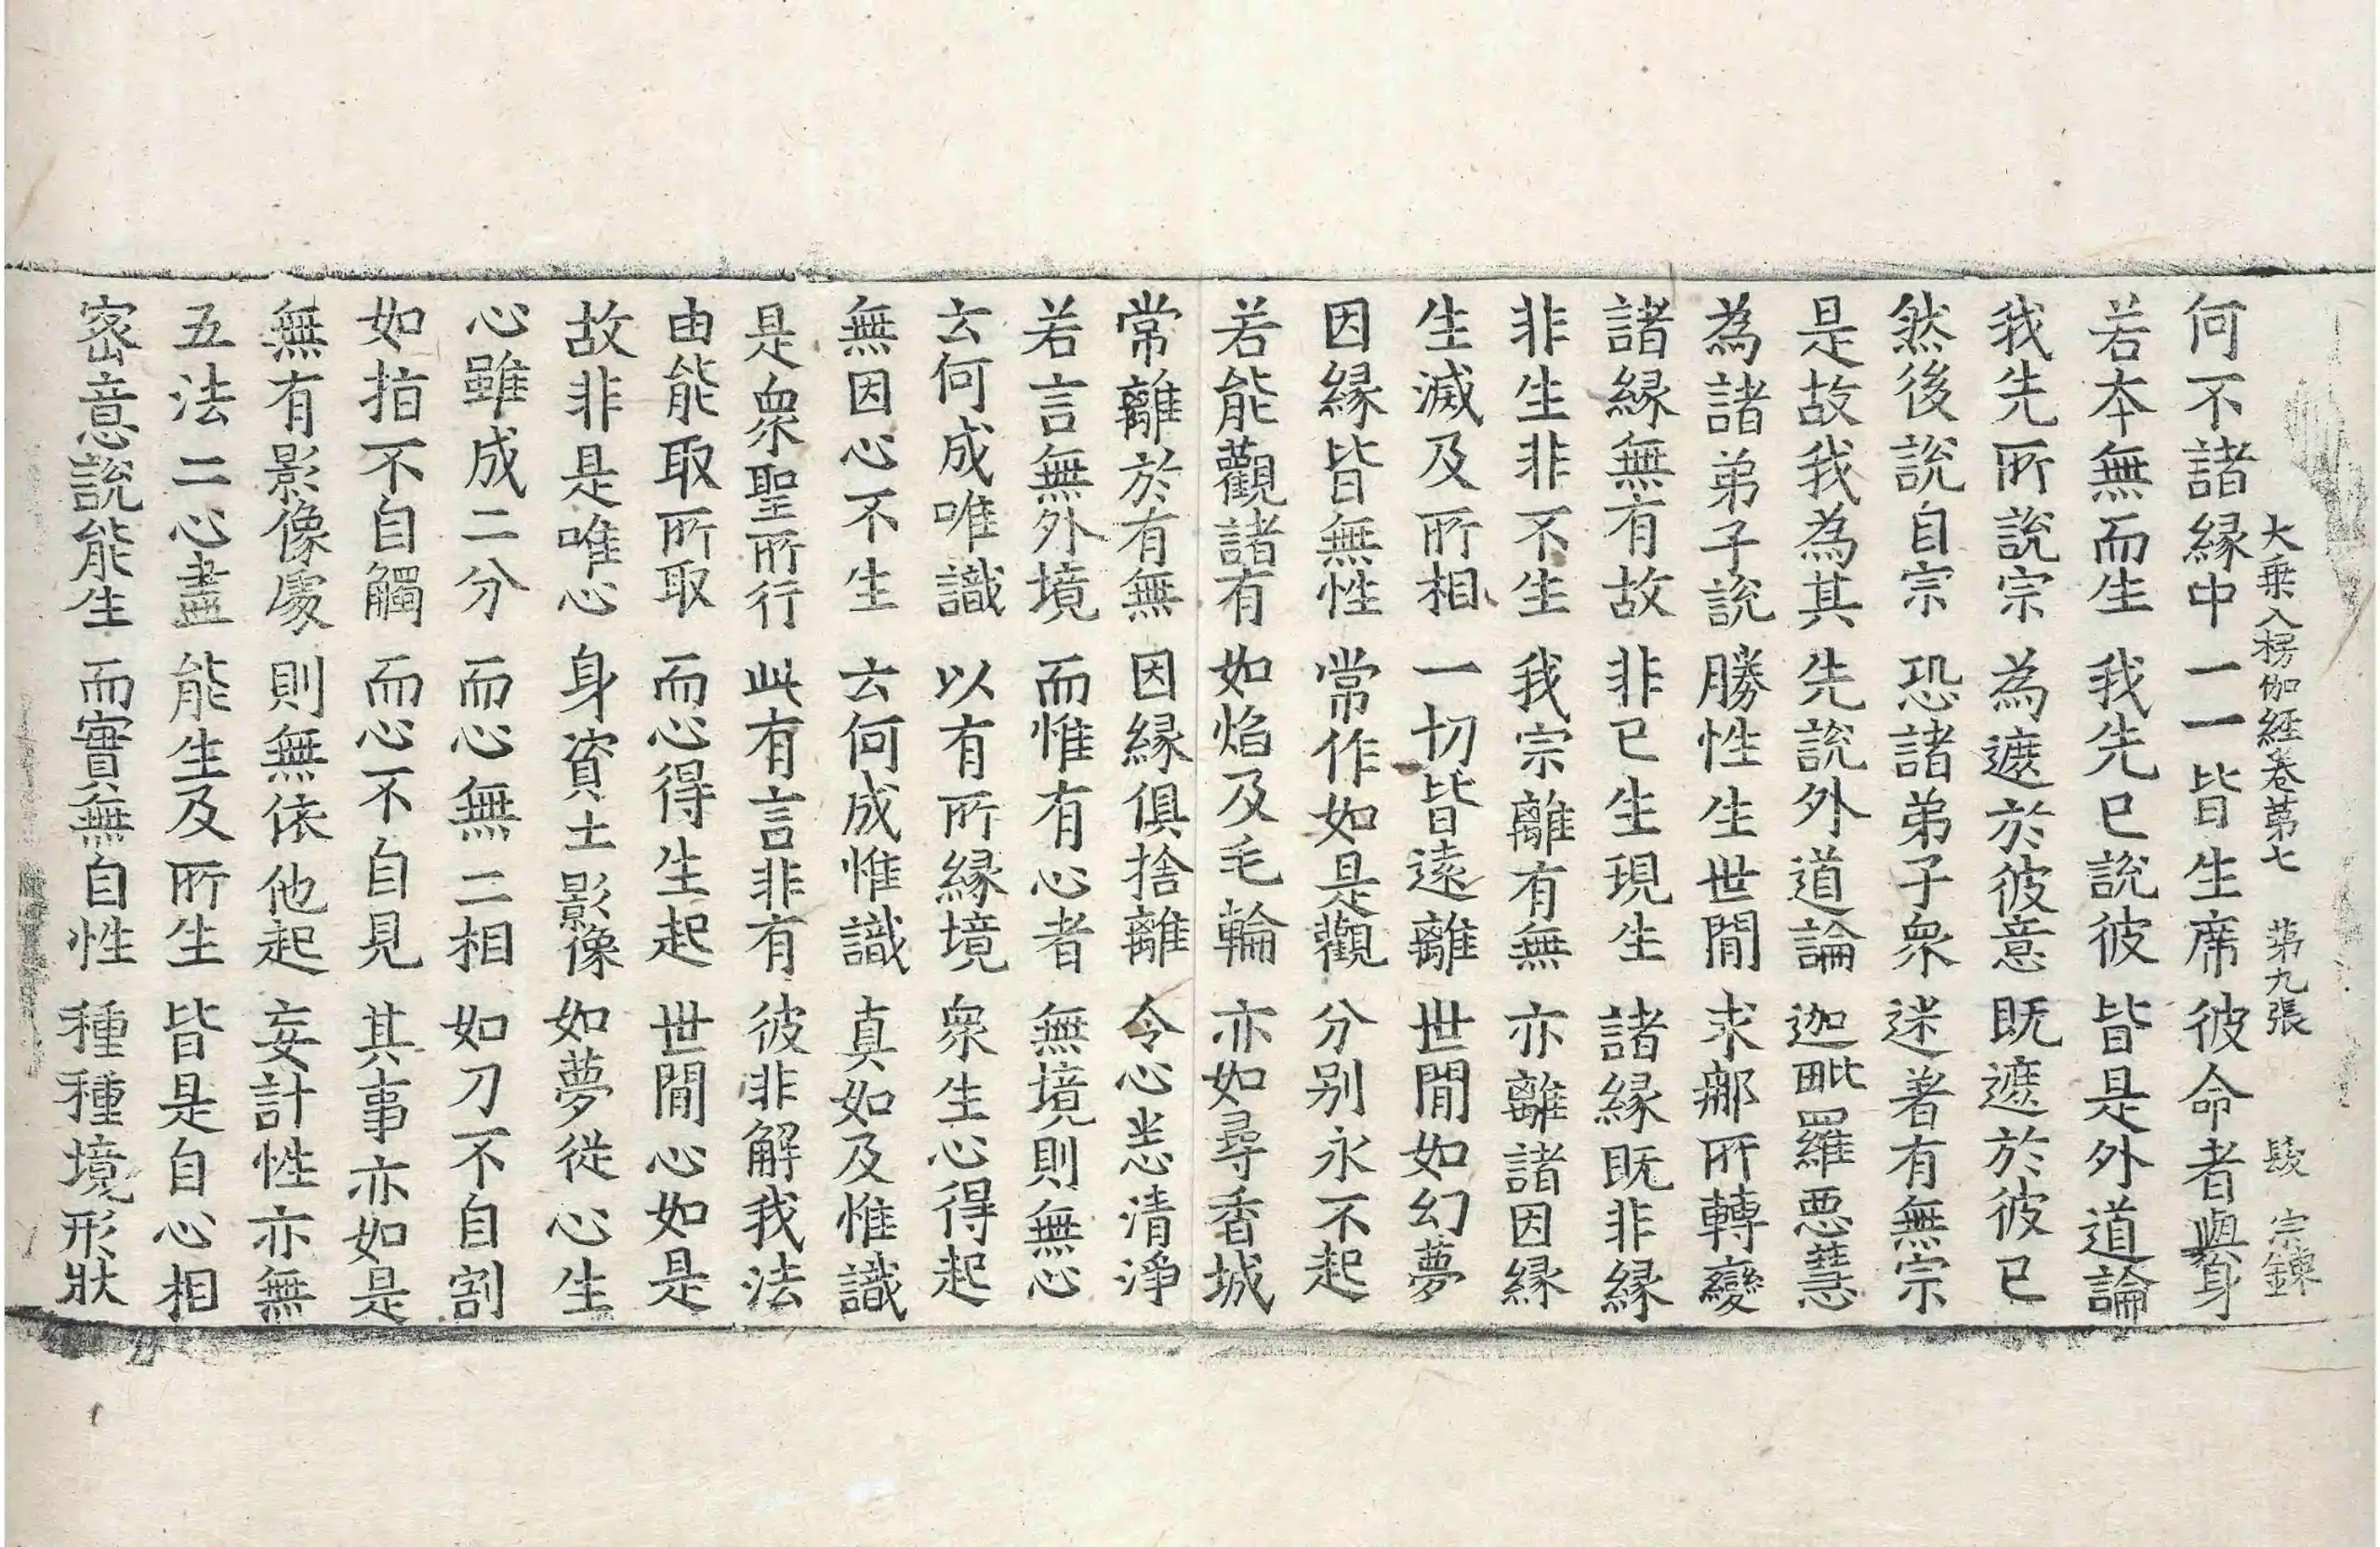 大乗入楞伽經卷第七 第九張 𮥼 宗鍊
何不諸縁中 一一皆生席 彼命者與身
若夲無而生 我先已說彼 皆是外道論
我先所說宗 為遮於彼意 既遮於彼已
然後說自宗 恐諸弟子衆 迷著有無宗
是故我為其 先說外道論 迦毗羅悪慧
為諸弟子說 勝性生世閒 求那所轉變
諸縁無有故 非已生現生 諸縁既非縁
非生非不生 我宗離有無 亦離諸因縁
生滅及所相 一切皆遠離 世閒如幻夢
因縁皆無性 常作如是觀 分別永不起
若能觀諸有 如焰及毛輪 亦如尋香城
常離於有無 因縁俱捨離 令心悉清淨
若言無外境 而惟有心者 無境則無心
云何成唯識 以有所縁境 衆生心得起
無因心不生 云何成惟識 真如及惟識
是衆聖所行 此有言非有 彼非解我法
由能取所取 而心得生起 世閒心如是
故非是唯心 身資土影像 如夢從心生
心雖成二分 而心無二相 如刀不自割
如指不自觸 而心不自見 其事亦如是
無有影像處 則無依他起 妄計性亦無
五法二心盡 能生及所生 皆是自心相
密意說能生 而實無自性 種種境形狀